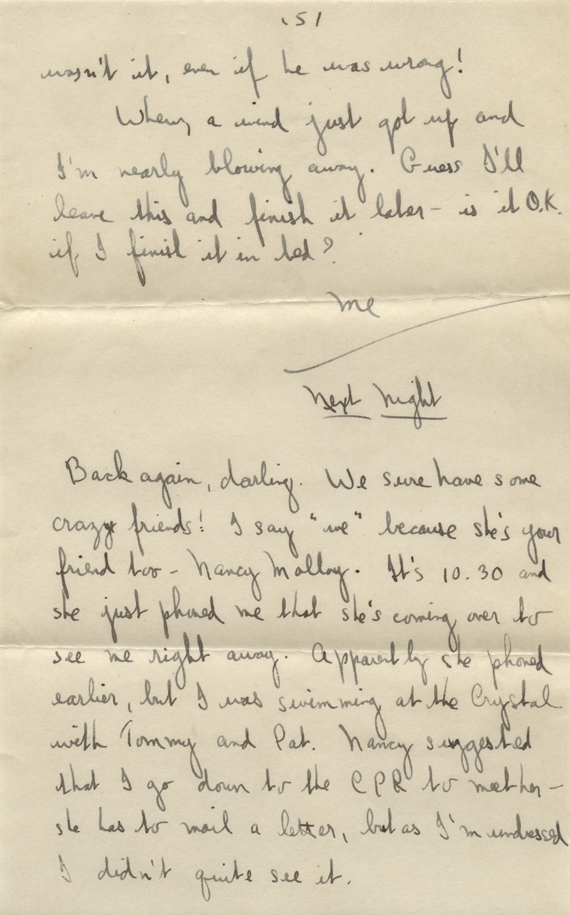 151
wasn't it, even if he was wrong!
Whew, a wind just got up and
I'm nearly blowing away. Guess I'll
leave this and finish it later - is it O.K.
if I finish it in bed?
Me
Next Night
Back again, darling. We sure have some
crazy friends! I say "we" because she's your
friend too - Nancy Molloy. It's 10.30 and
she just phoned me that she's coming over to
see me right away. Apparently she phoned
earlier, but I was swimming at the Crystal
with Tommy and Pat. Nancy suggested
that I go down to the CPR to meether -
she has to mail a letter, but as I'm undressed
I didn't quite see it.